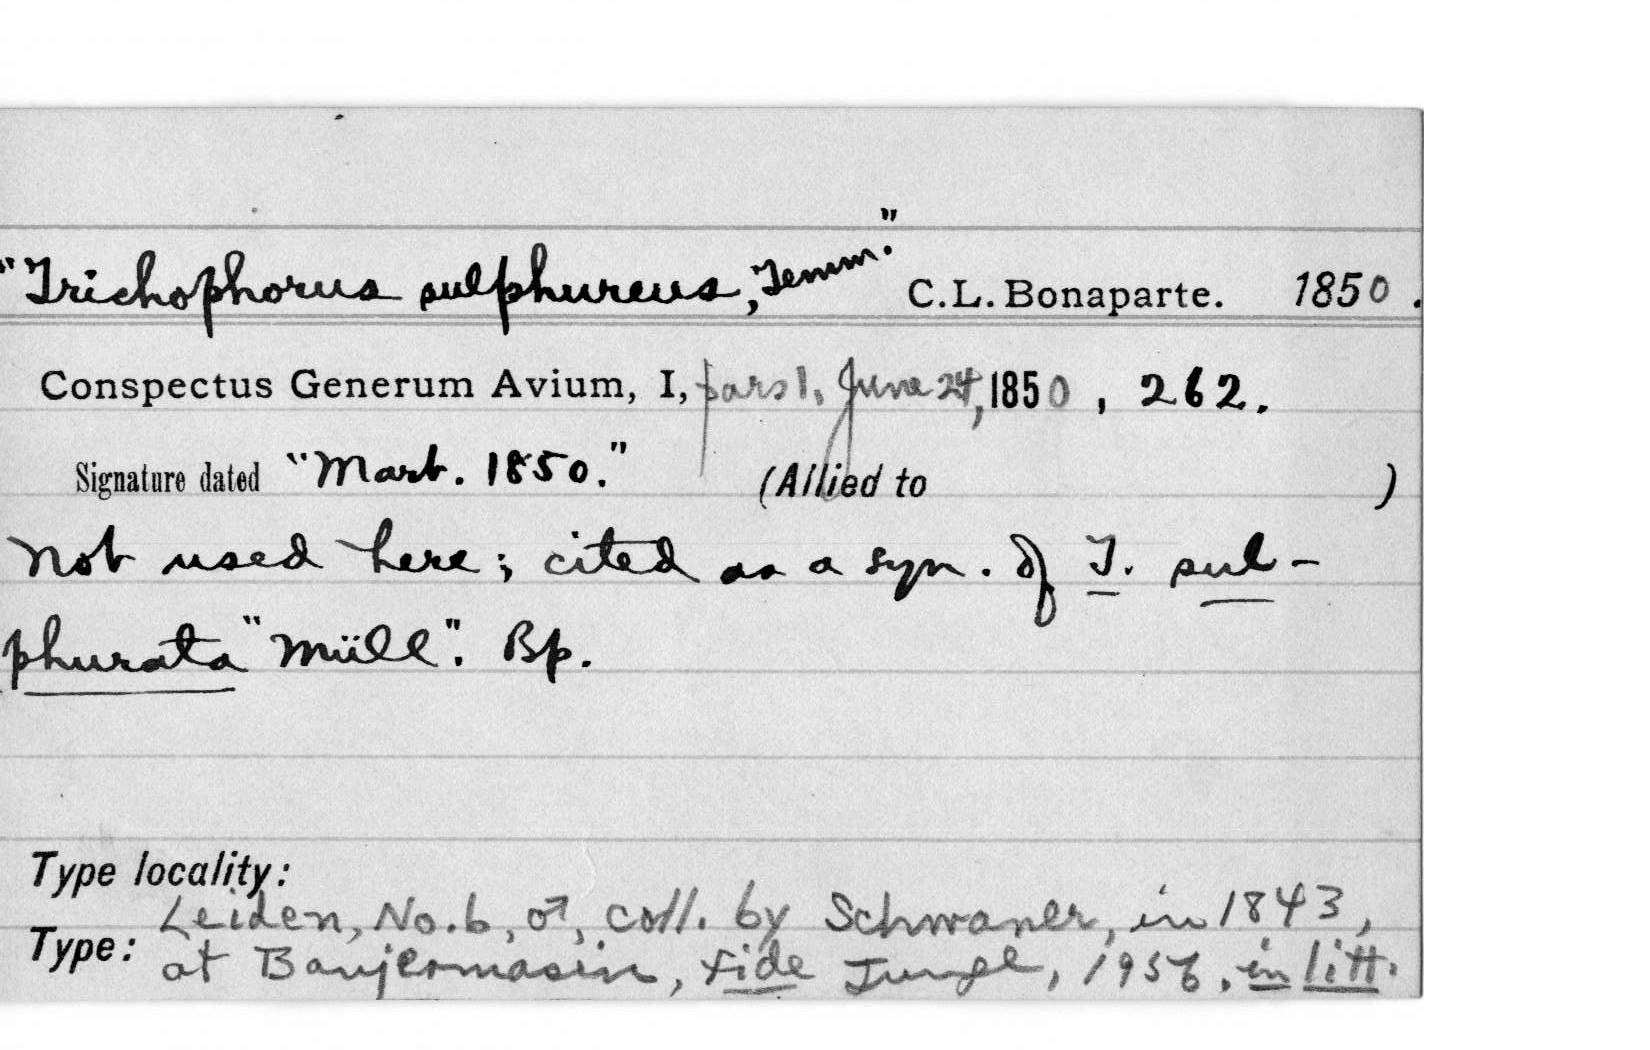 "Trichophorus sulphureus, Temm." C.L. Bonaparte. 1850.
Conspectus Generum Avium, I, pars 1, June 24, 1850, 262.
Signature dated "Mart. 1850." (Allied to )
Not used here; cited as a syn. of T. sul-
phurata "Müll". Bp.
Type locality:
Leiden, No. 6, ♂, coll. by Schwaner, in 1843,
Type: at Banjermasin, fide Junge, 1956, in litt.